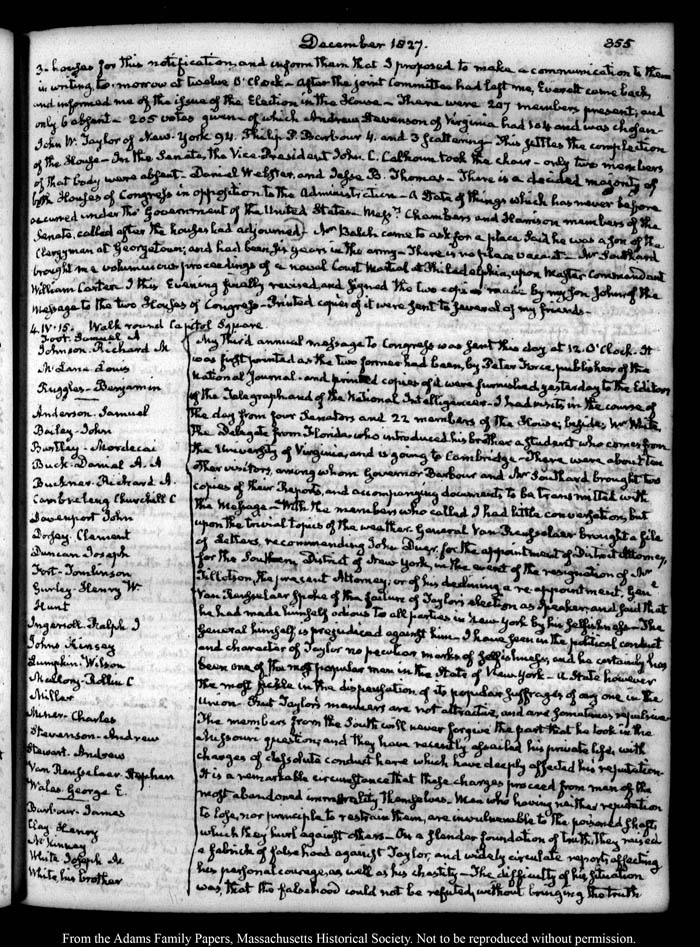 December 1827.
355
3. houses for this notification, and inform them that I proposed to make a communication to them
in writing, to-morrow at twelve O'Clock – After the joint Committee had left me, Everett came back,
and informed me of the issue of the Election in the House – There were 207 members present, and
only 6 absent – 205 votes given – of which Andrew Stevenson of Virginia had 104 and was chosen –
John W. Taylor of New-York 94. Philip P. Barbour 4. and 3 scattering – This settles the complection
of the House – In the Senate, the Vice-President John C. Calhoun took the chair – only two members
of that body were absent – Daniel Webster, and Jesse B. Thomas – There is a decided majority of
both Houses of Congress in opposition to the Administration – A State of things which has never before
occurred under the Government of the United States – Messrs Chambers and Harrison members of the
Senate, called after the houses had adjourned – Mr Balch came to ask for a place Said he was a son of the
Clergyman at Georgetown; and had been six years in the army – There is no place vacant – Mr Southard
brought me a voluminous proceedings of a naval Court Martial at Philadelphia, upon Master Commandant
William Carter I this Evening finally revised and signed the two copies made by my son John of the
Message to the two Houses of Congress – Printed copies of it were sent to several of my friends –
4. IV. 15. Walk round Capitol Square
Foot. Samuel A
Johnson. Richard M
McLane Louis
Ruggles – Benjamin
Anderson. Samuel
Bailey – John
Bartley – Mordecai
Buck – Daniel A. A
Buckner – Richard A.
Cambreleng Churchill C
Davenport John
Dorsey. Clement
Duncan Joseph
Fort. Tomlinson
Gurley – Henry W.
Hunt
Ingersoll – Ralph I
Johns Kinsey
Lumpkin. Wilson
Mallary – Rollin C
Miller
Miner. Charles
Stevenson – Andrew
Stewart. Andrew
Van Rensselaer. Stephen
Wales George E.
Barbour. James
Clay Henry
McKinney
White Joseph M
White, his brother
My third annual message to Congress was sent this day at 12. O'Clock – It
was first printed as the two former had been, by Peter Force, publisher of the
National Journal – and printed copies of it were furnished yesterday to the Editors
of the Telegraph and of the National Intelligencer – I had visits in the course of
the day from four Senators and 22 members of the House; besides Mr White,
the Delegate from Florida who introduced his brother a student who comes from
the University of Virginia, and is going to Cambridge – There were about ten
other visitors, among whom Governor Barbour and Mr Southard brought two
copies of their Reports, and accompanying documents to be transmitted with
the Message – With the members who called I had little conversation, but
upon the trivial topics of the weather – General Van Rensselaer brought a file
of Letters, recommending John Duer, for the appointment of District Attorney,
for the Southern District of New York, in the event of the resignation of Mr
Tillotson, the present Attorney; or of his declining a re-appointment. Genl
Van Rensselaer spoke of the failure of Taylor's election as Speaker, and said that
he had made himself odious to all parties in New-York by his selfishness – The
General himself is prejudiced against him – I have seen in the political conduct
and character of Taylor no peculiar marks of selfishness, and he certainly has
been one of the most popular men in the State of New-York – a State however
the most fickle in the dispensation of its popular suffrages of any one in the
Union – But Taylor's manners are not attractive, and are sometimes repulsive
The members from the South will never forgive the part that he took in the
Missouri question, and they have recently assailed his private life, with
charges of dissolute conduct here which have deeply affected his reputation.
It is a remarkable circumstance that these charges proceed from men of the
most abandoned immorality themselves – Men who having neither reputation
to lose, nor principle to restrain them, are invulnerable to the poisoned shafts,
which they hurl against others – On a slender foundation of truth, they raised
a fabrick of falsehood against Taylor, and widely circulate reports affecting
his personal courage, as well as his chastity – The difficulty of his situation
was, that the falsehood could not be refuted, without bringing the truth
From the Adams Family Papers, Massachusetts Historical Society. Not to be reproduced without permission.